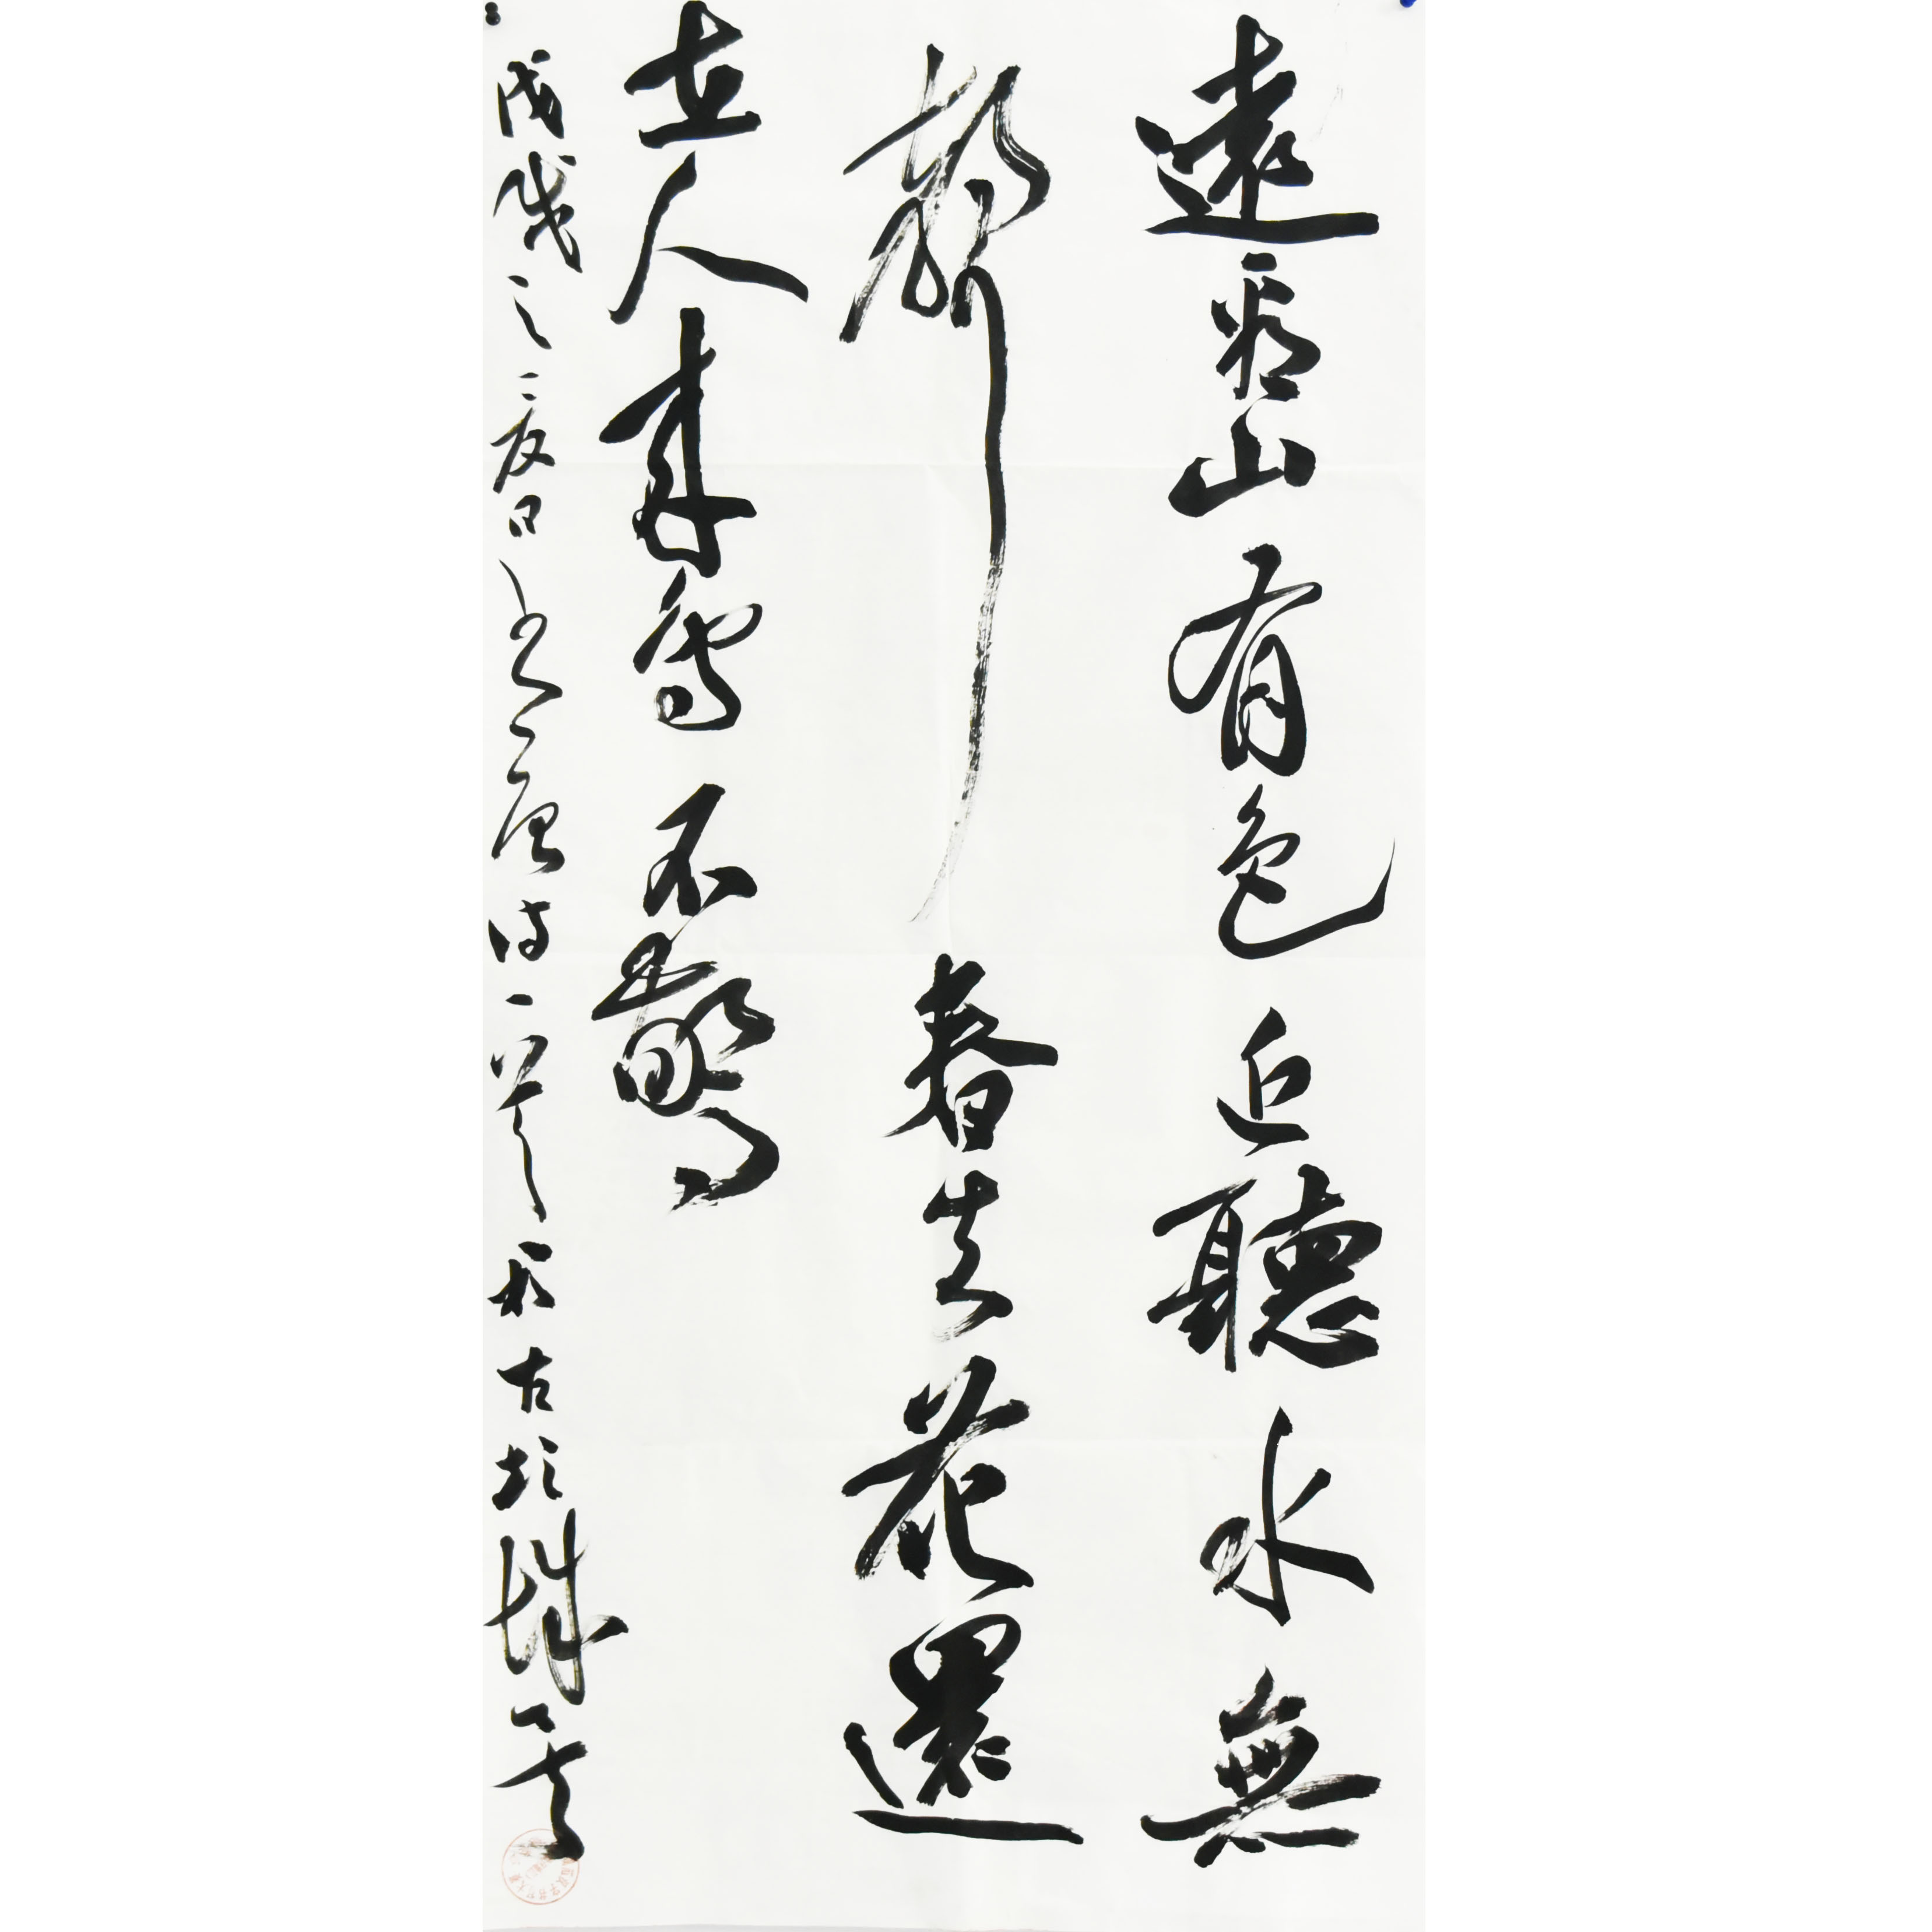 遠看山有色近聽水無
聲春去花還
在人來鳥不驚
戊戌之夏日書唐诗一首